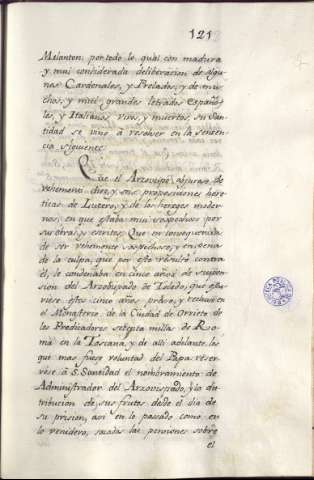 121
Melanton: por todo lo qual con madura
y mui considerada deliberacion de algu-
nos Cardenales, y Prelados, y de mu-
chos, y mui grandes letrados Españo-
les, y Italianos vivos, y muertos, su San-
tidad se vino à resolver en la senten-
cia siguiente.
Que el Arzovispo abjurase de
vehementi diez y seis proposiciones here-
ticas de Lutero, y de los hereges moder-
nos, en que estaba mui sospechoso por
sus obras, y escritos. Que en consequencia
de ser vehemente sospechoso, y en pena
de la culpa, que por esto resultó contra
él, le condenaba en cinco años de suspen-
sion del Arzobispado de Toledo, que estu-
viese estos cinco años preso, y recluso en
el Monasterio de la Ciudad de Orvieto de
los Predicadores setenta millas de Ro-
ma en la Toscana, y de alli adelante lo
que mas fuese voluntad del Papa: reser-
vose à S. Santidad el nombramiento de
Administrador del Arzovispado, y la dis-
tribucion de sus frutos desde el dia de
su prision, asi en lo pasado como en
lo venidero, sacadas las pensiones sobre
el